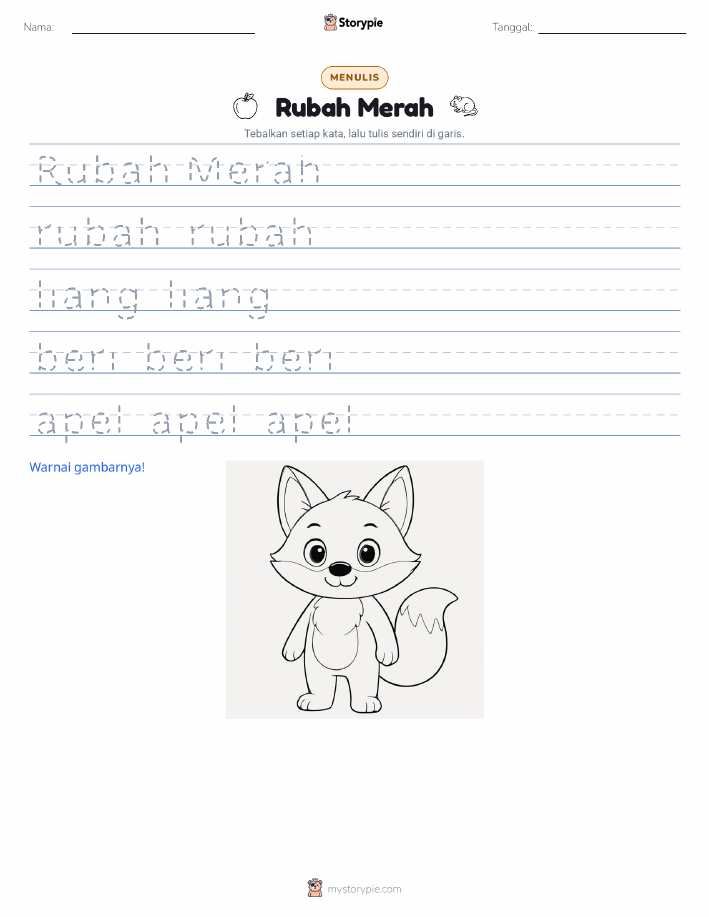 Nama:
Storypie
Tanggal:
MENULIS
Rubah Merah
Tebalkan setiap kata, lalu tulis sendiri di garis.
Rubah Merah
rubah rubah
liang liang
beri beri beri
apel apel apel
Warnai gambarnya!
mystorypie.com